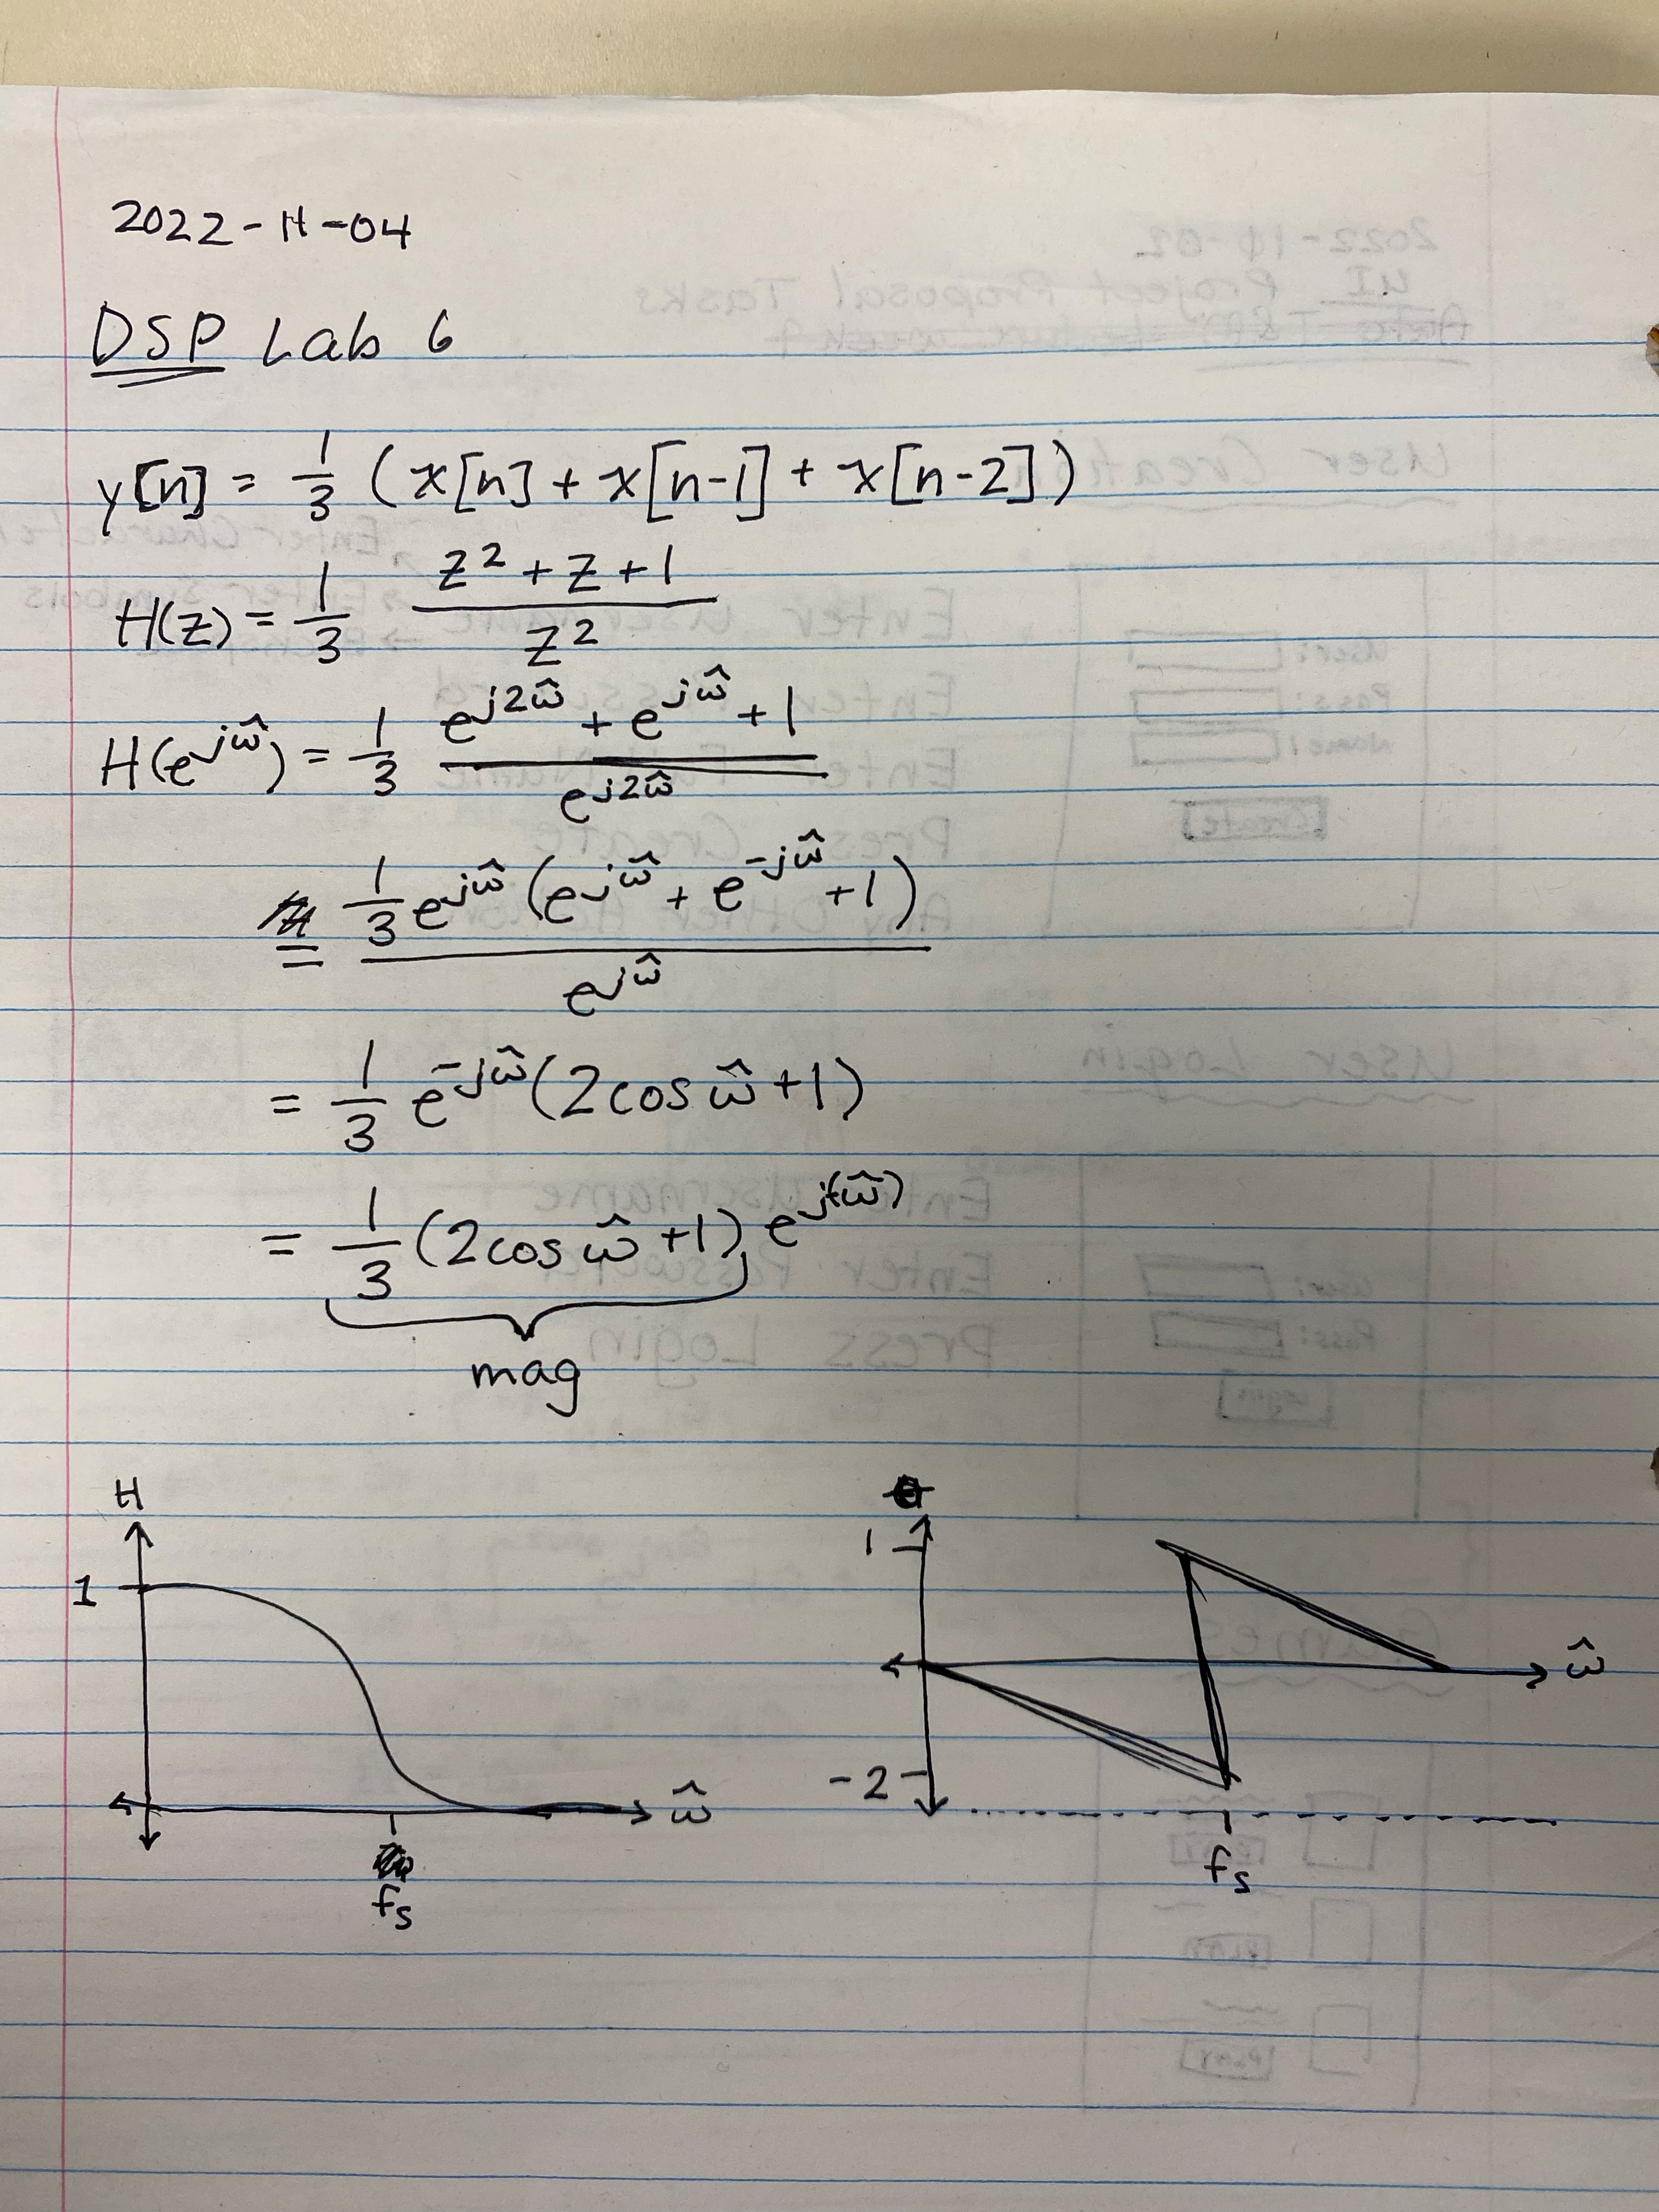 2022-11-04
DSP Lab 6
y[n] = 1/3 (x[n] + x[n-1] + x[n-2])
H(z) = 1/3 (z² + z + 1)/z²
H(e^jω̂) = 1/3 (e^j2ω̂ + e^jω̂ + 1)/e^j2ω̂
= 1/3 e^jω̂ (e^jω̂ + e^-jω̂ + 1)/e^jω̂
= 1/3 e^-jω̂ (2cos ω̂ + 1)
= 1/3 (2cos ω̂ + 1) e^j(-ω̂)
mag
H
1
ω̂
fs
θ
1
ω̂
-2
fs